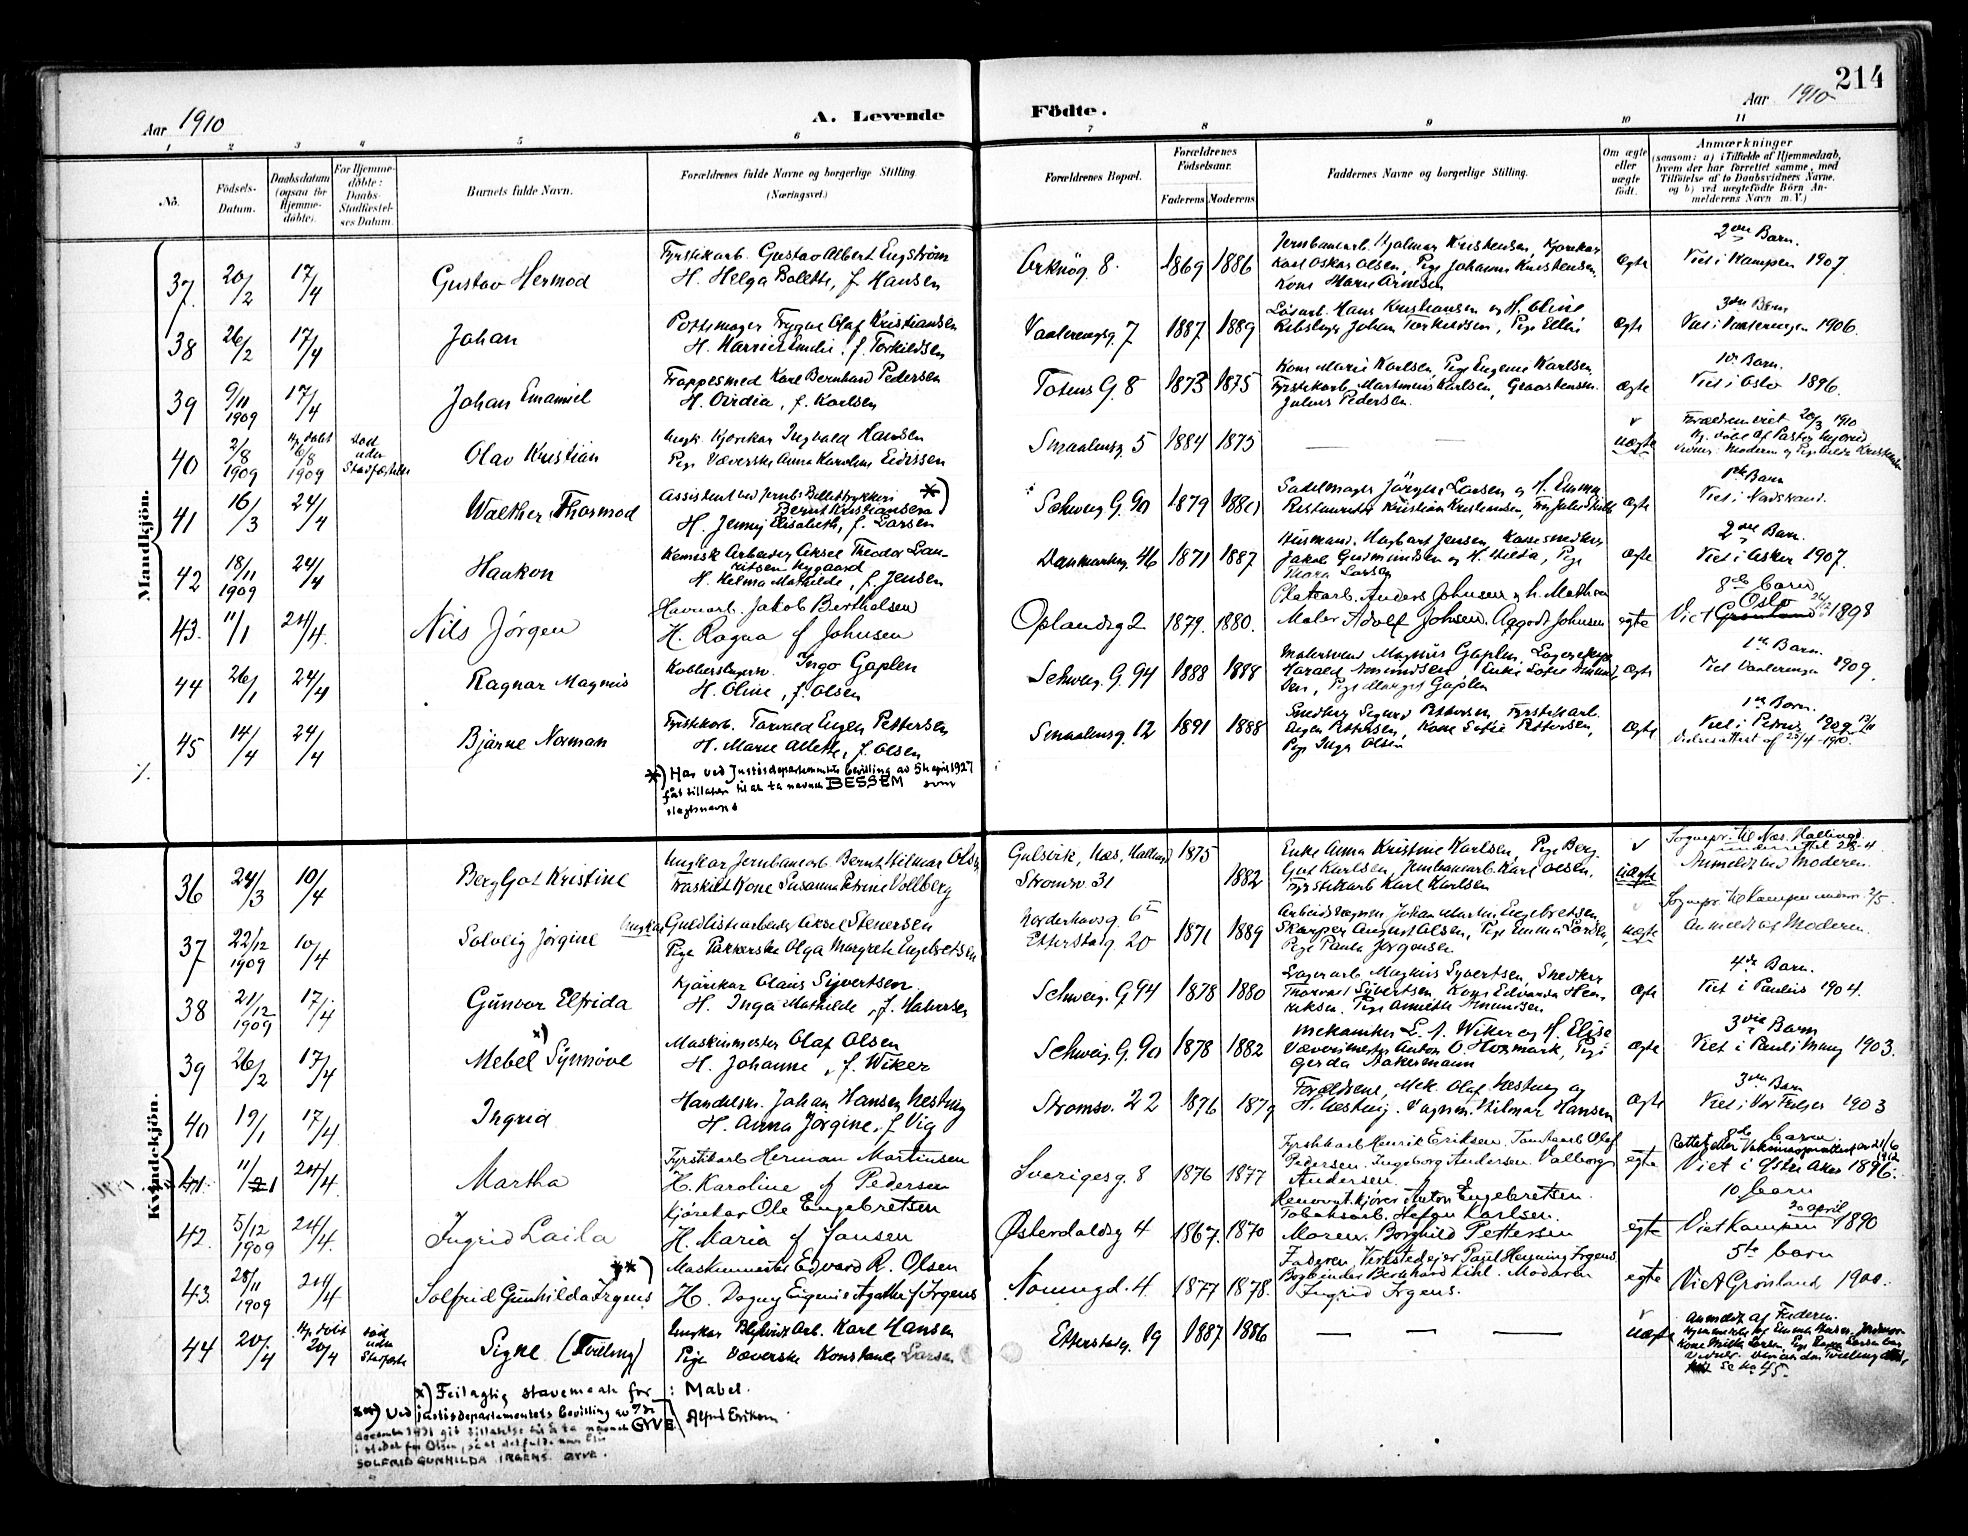 214
Aar 1910
A. Levende
Födte.
Aar 1910
1 2 3 4 5 6 7 8 9 10 11
No.
Födsels-
Datum.
Daabsdatum
(ogsaa for
Hjemme-
döbte).
For Hjemme-
döbte:
Daabs-
Stadfæstel-
ses Datum.
Barnets fulde Navn.
Forældrenes fulde Navne og borgerlige Stilling
(Næringsvei.)
Forældrenes Bopæl.
Forældrenes
Födselsaar.
Faderens Moderens
Faddernes Navne og borgerlige Stilling.
Om ægte
eller
uægte
födt.
Anmærkninger
(saasom: a) i Tilfælde af Hjemmedaab,
hvem der har forrettet samme, med
Tilföielse af to Daabsvidners Navne.
og b) ved uægtefödte Börn An-
melderens Navn m. V.)
Mandkjön.
37. 20/2 17/4 Gustav Hermod
Fyrstikarb. Gustav Albert Engström
H. Helga Bolette, f. Hansen
8. 1869 1886
Jernbanearb. Hjalmar Kristensen, Kjørekar
Karl Oskar Olsen, Pige Johanne Kristensen
Kone Marie Arnesen
ægte
2den Barn.
Viet i Kampen 1907.
38 26/2 17/4 Johan
Pottemager Trygve Olaf Kristiansen
H. Harriet Emilie, f. Torkildsen
Vaalerengg. 7 1887 1889
Løsarb. Hans Kristiansen og H. Oline
Rebslager Johan Torkildsen, Pige Elli
ægte
3die Barn
Viet i Vaalerengen 1906.
39 9/11 1909 17/4 Johan Emanuel
Trappesmed Karl Bernhard Pedersen
H. Ovidia, f. Karlsen
Totens G. 8 1873 1875
Kone Marie Karlsen, Pige Eugenie Karlsen
Fyrstikarb. Martinius Karlsen, Graastensm.
Julius Pedersen.
ægte
10de Barn.
Viet i Oslo 1896.
40 2/8 1909 Hj. døbt 16/8 1909
død
uden
Stadfæstelse
Olav Kristian
Ungk. Kjørekar Ingvald Hansen
Pige Væverske Anna Karoline Eidissen
Smaalensg. 5 1884 1875
— —
uægte
Forældrene viet 20/3 1910
Hj. døbt af Pastor
41 16/3 24/4 Walther Thormod
Assistent ved Jernb. Billettrykkeri *)
Bernt Kristiansen
H. Jenny Elisabeth, f. Larsen
Schweig. G. 90 1879 1880
Sadelmager Jörgen Larsen og H. Emma
Restauratør Kristian Kristiansen,
ægte
1ste Barn
Viet i Nordstrand.
42 18/11 1909 24/4 Haakon
Kemisk Arbeider Aksel Theodor Lau-
ritsen Nygaard
H. Helma Mathilde, f. Jensen
Danmarksg. 46 1871 1887
Husmand. Hagbart Jensen, Kassesnedker
Jakob Gudmundsen og H. Hilda, Pige
Thora Larsen
ægte
2den Barn.
Viet i Asker 1907.
43. 11/1 24/4. Nils Jörgen
Havnearb. Jakob Bertholsen
H. Ragna f. Johnsen
Oplandsg 2 1879. 1880.
Platearb. Anders Johnsen og h. Mathea
Maler Adolf Johnsen. Aagodt Johnsen
egte
8de barn
Oslo
Viet Grønland 1898
44 26/1 24/4 Ragnar Magnus
Kobberslagersv. Ingo Gaplen
H. Oline, f. Olsen
Schweig. G. 94 1888 1888
Malersvend Magnus Gaplen, Lagerexped.
Harald Amundsen Enke Sofie Amund-
sen, Pige Margit Gaplen
ægte
1ste Barn.
Viet Vaalerengen 1909.
45 14/4 24/4 Bjarne Norman
Fyrstikarb. Torvald Eugen Pettersen
H. Marie Alette, f. Olsen
Smaalensg. 12 1891 1888
Snedker Sigurd Pettersen, Fyrstikarb.
Eugen Pettersen, Kone Sofie Pettersen,
Pige Inga Olsen
ægte
1ste Barn.
Viet i Petrus 1909
Vidnesattest af 23/4 1910.
*) Har ved Justisdepartementets bevilling av 5te april 1927
fåt tillatelse til at ta navnet BESSEM som
slegtsnavn
Kvindekjön.
36 24/3 10/4 Bergljot Kristine
Ungkar Jernbanearb. Bernt Hilmar Olsen
Fraskilt Kone Susanna Petrine Vollberg
Gulsvik, Næs, Halling. 1875
Stromsv. 31 1882
Enke Anna Kristine Karlsen, Pige Berg-
ljot Karlsen, Jernbanearb. Karl Olsen,
Fyrstikarb. Karl Karlsen
uægte
Sognepr. til Næs, Hallingd.
underrettet 28-4
Anmeldt ved Moderen.
37 22/12 1909 10/4 Solveig Jörgine
Ungkar Guldlistearbeider Aksel Stenersen
Pige Pakkerske Olga Margrete Engebretsen
Norderhovsg. 6
Etterstadg. 20 1871 1889
Arbeidsvognm. Johan Martin Engebretsen
Skarper August Olsen, Pige Emma Larsen,
Pige Paula Jörgensen
uægte
Sognepr. til Kampen underr. 2/5.
Anmeldt af Moderen.
38 21/12 1909 17/4 Gunvor Elfrida
Kjörekar Olaus Syvertsen
H. Inga Mathilde, f. Halvorsen
Schweig. G. 94 1878 1880
Lagerarb. Magnus Syvertsen, Snedker
Thorvald Syvertsen, Kone Edvarda Hen-
riksen, Pige Annette Amundsen
ægte
4de Barn.
Viet i Paulus 1904.
39 26/2 17/4 Mebel x) Synnöve
Maskinmester Olaf Olsen
H. Johanne, f. Wiker
Schweig. G. 90 1878 1882
Mekaniker L. A. Wiker og H. Elise
Vævermester Anton O. Hormark, Pige
Gerda Aakermann
ægte
3die Barn
Viet i Pauli Menig 1903.
40 19/1 17/4 Ingrid
Handelsr. Johan Hansen Næstvig
H. Anna Jörgine, f. Vig
Stromsv. 22 1876 1879
Forældrene, Mek. Olaf Næstvig og
H. Næstvig. Vognm. Hilmar Hansen
ægte
3die Barn
Viet i Vor Frelser 1903
41. 11/1 24/4. Martha
Fyrstikarb Herman Martinsen
H. Karoline f Pedersen
Sverigesg. 8 1876 1877
Fyrstikarb Henrik Eriksen. Tomtearb Olaf
Pedersen. Ingeborg Andersen. Valborg
Andersen.
egte
8de barn.
Rettet efter Vaksinasjonsattest av 21/6 1912
Viet i Østre Aker 1896.
42. 5/12 1909 24/4. Ingrid Laila
Kjörekar Ole Engebretsen
H. Maria f Jansen
Østerdalsg 4 1867. 1870
Renovat.kjører Anton Engebretsen.
Tobaksarb. Hefan Karlsen.
Maren. Borghild Pettersen
egte
10 barn
20 april
Viet Kampen 1890
43. 28/11 1909 24/4. Solfrid Gunhilda Irgens **)
Maskinmester Edvard R. Olsen
H. Dagny Eugenie Agathe f Irgens
4. 1877 1878.
Faderen, Verkstedeier Paul Henning Irgens
Bogbinder Bernhard Kihl. Moderen
Ingrid Irgens.
egte
5te barn
Viet Grønland 1900.
44 20/4 Hj. døbt 20/4
død
uden
Stadfæstelse
Signe (Tvilling)
Ungkar Blyhvidtarb. Karl Hansen
Pige Væverske Konstanse Larsen
Etterstadg. 19 1887 1886
— — —
uægte
Anmeldt af Faderen.
se No 45.
x) Feilagtig stavemaate for : Mabel.
**) Ved justisdepartementets bevilling av 7de
december 1931 git tillatelse til å ta navnet GYVE
i stedet for Olsen, så at det fulde navn blir
SOLFRID GUNHILDA IRGENS GYVE.
Alfred Eriksen